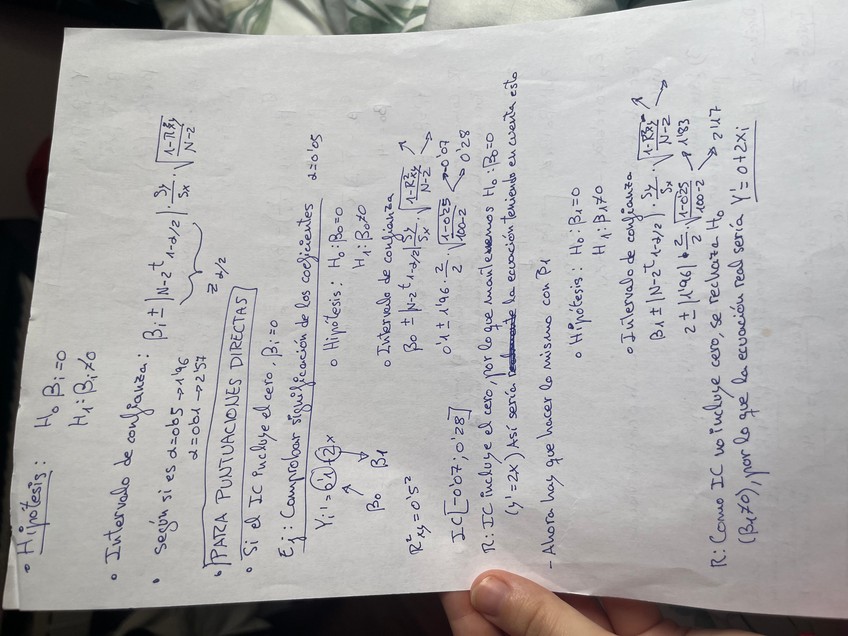 • Hipótesis: H₀ βi=0
H₁: βi≠0
• Intervalo de confianza: βi ± |N-2 t 1-α/2| Sy/Sx · √(1-R²xy/N-2)
z α/2
• según si es α=0'05 → 1'96
α=0'01 → 2'57
• PARA PUNTUACIONES DIRECTAS
• Si el IC incluye el cero, βi=0
Ej: Comprobar significación de los coeficientes α=0'05
Yi' = 0'1 + 2x
β₀ β₁
R²xy=0'5²
• Hipótesis: H₀: β₀=0
H₁: β₀≠0
• Intervalo de confianza
β₀ ± |N-2 t 1-α/2| Sy/Sx √(1-R²xy/N-2)
0'1 ± 1'96 · 2/2 · √(1-0'25/100-2) → -0'07
→ 0'28
IC [-0'07; 0'28]
R: IC incluye el cero, por lo que mantenemos H₀: β₀=0
(y'=2x) Así sería la ecuación teniendo en cuenta esto
- Ahora hay que hacer lo mismo con β1
• Hipótesis: H₀: β₁=0
H₁: β₁≠0
• Intervalo de confianza
β1 ± |N-2 t 1-α/2| · Sy/Sx · √(1-R²xy/N-2)
2 ± |1'96| · 2/2 · √(1-0'25/100-2) → 1'83
→ 2'17
R: Como IC no incluye cero, se rechaza H₀
(β₁≠0), por lo que la ecuación real sería Y'=0+2Xi